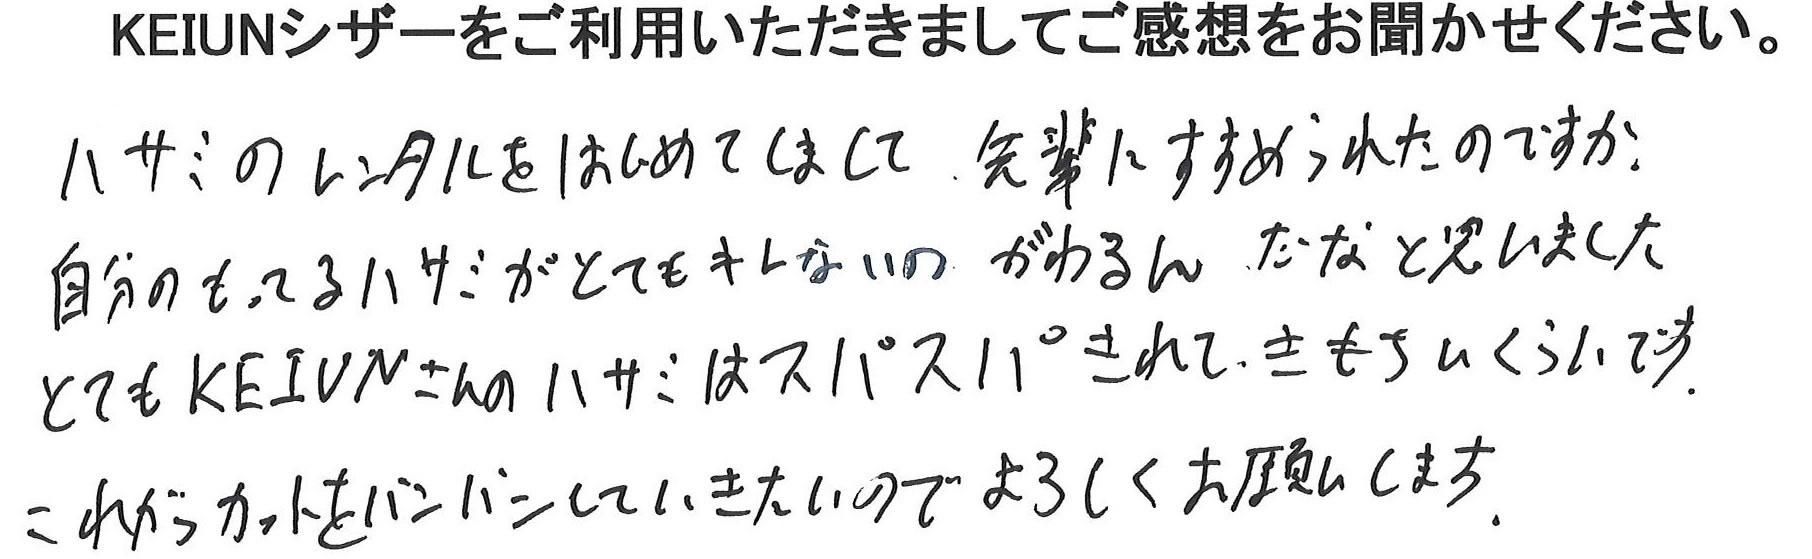 KEIUNシザーをご利用いただきましてご感想をお聞かせください。
ハサミのレンタルをはじめてしまして、先輩にすすめられたのですが、
自分のもってるハサミがとてもキレないのがわるんだなと思いました
とてもKEIUNさんのハサミはスパスパきれて、きもちいくらいです。
これからカットをバンバンしていきたいのでよろしくお願いします。